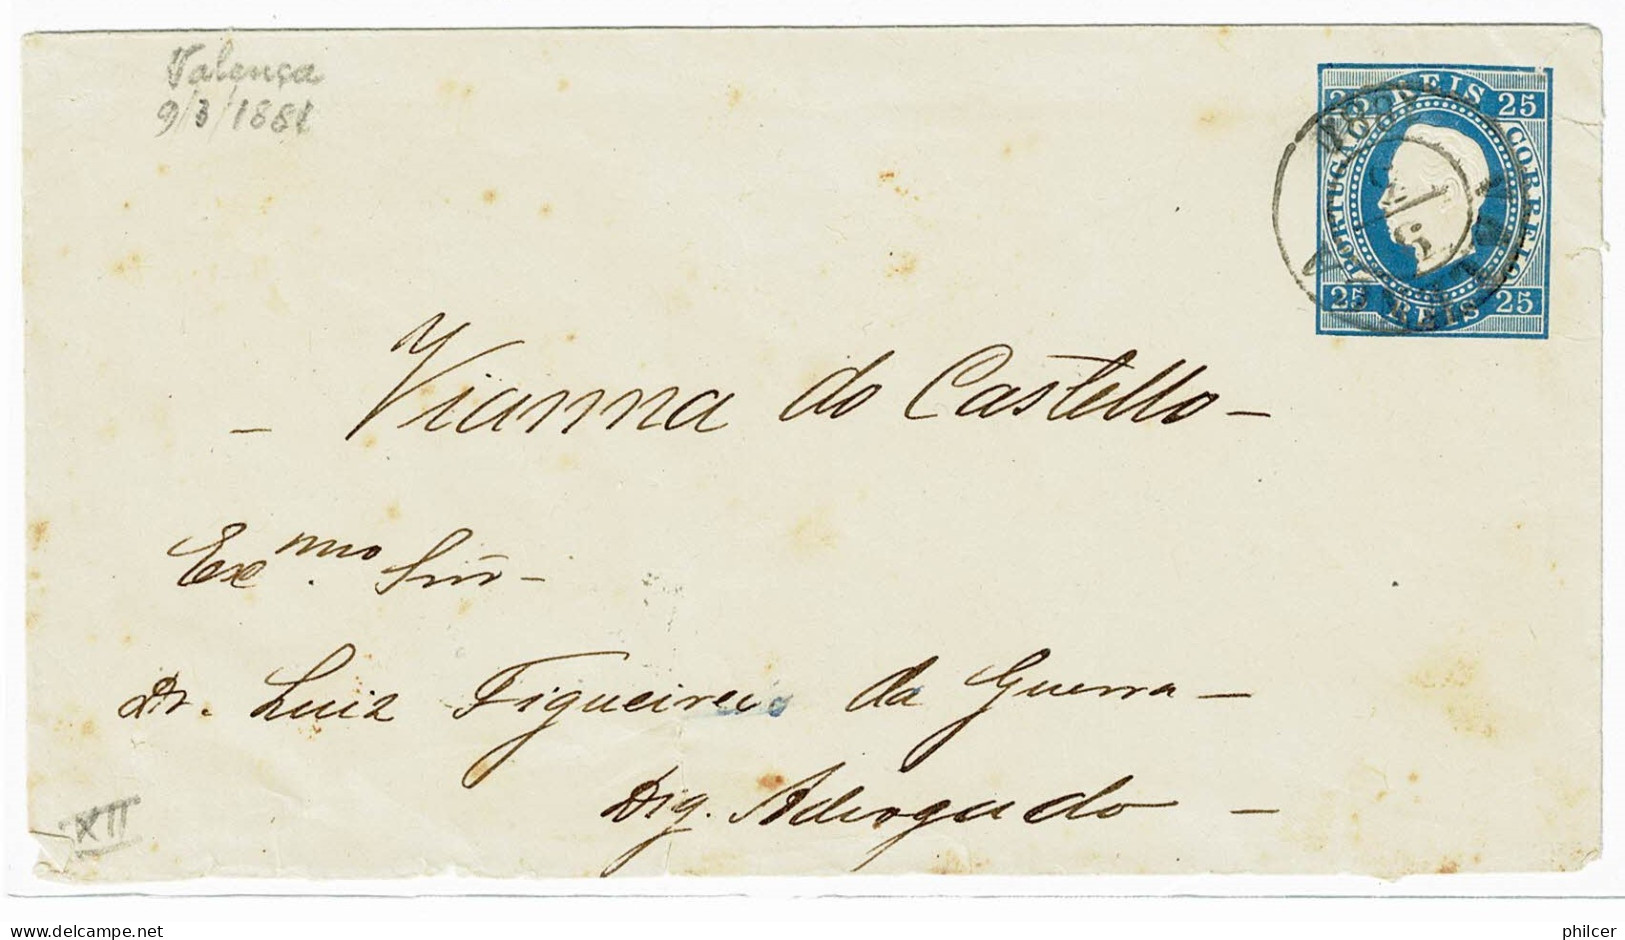 Valença
9/3/1881
25 REIS 25
PORTUGAL
CORREIO
25 REIS 25
- Vianna do Castello -
Ex.mo Snr -
Dr. Luiz Figueiredo da Guerra -
Dig. Advogado -
XII
delcampe.net
philcer